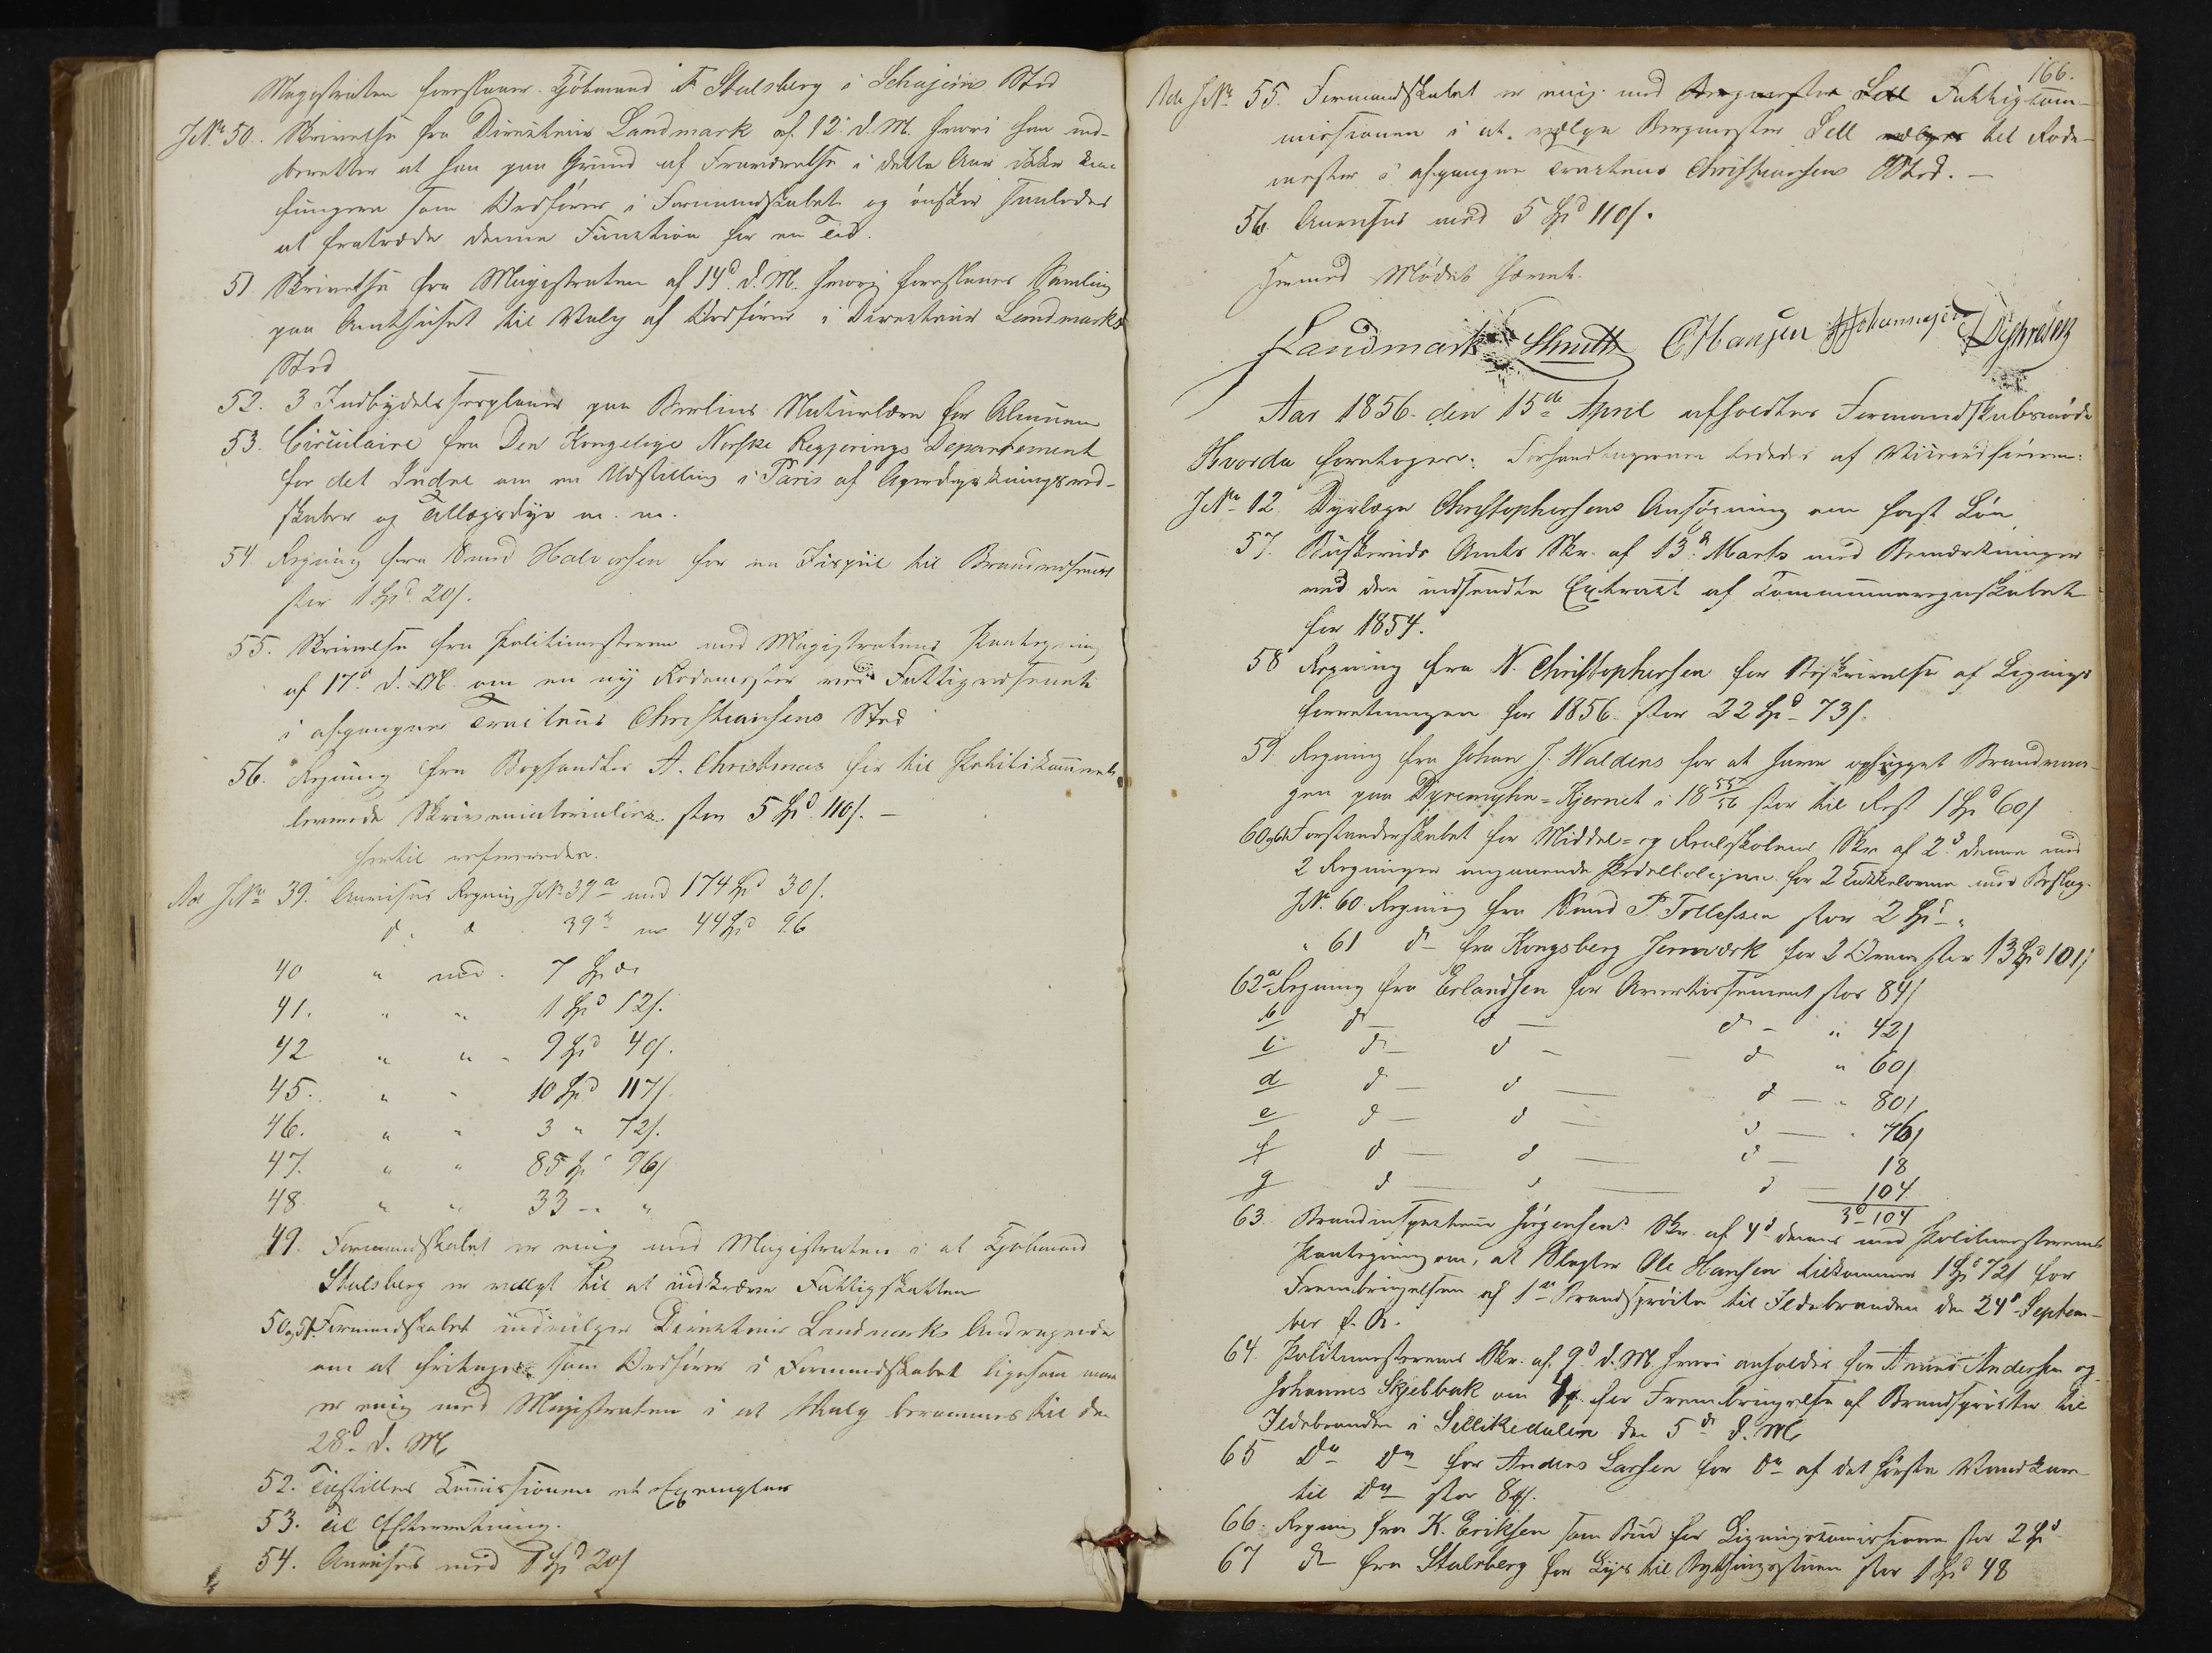 Magistraten foreslaaer Kjöbmand F Stalsberg i Schajéns Sted
JNo 50. Skrivelse fra Directeur Landmark af 12 d. M. hvori han ind-
beretter at han paa Grund af Fraværelse i dette Aar ikke kan
fungere som Ordförer i Formandskabet og önsker saaledes
at fratræde denne Function for en Tid.
51 Skrivelse fra Magistraten af 14d d. M. hvori foreslaaes Samling
paa Raadhuset til Valg af Ordförer i Directeur Landmarks
Sted
52. 3 Indbydelsesplaner paa Berlins Naturlære for Almuen
53. Circulaire fra Den Kongelige Norske Regjerings Departement
for det Indre om en Udstilling i Paris af Agerdyrkningsred-
skaber og Tillægsdyr m. m.
54 Regning fra Knud Halvorsen for en Fispiil til Brandvæsenet
stor 1 Spd 20 s.
55. Skrivelse fra Politimesteren med Magistratens Paategning
af 17d d. M. om en ny Rodemester ved Fattigvæsenet
i afgangne Tracteur Christiansens Sted
56. Regning fra Boghandler A. Christmas for til Politikammeret
leverede Skrivematerialier stor 5 Spd 110 s. —
Hertil refereredes.
Ad JNo 39. Anvises Regning JNo 39 a med 174 Spd 30 s.
d. d 39 b m 44 Spd 96
40 " med 7 Spd
41. " " 1 Spd 12 s.
42 " " - 9 Spd 40 s.
45. " - 10 Spd 117 s
46. " " 3 " 72 s.
47. " " 85 Sp 96 s
48. " " 33 - "
49. Formandskabet er enig med Magistraten i at Kjöbmand
Stalsberg er valgt til at indkræve Fattigskatten
50 og 51. Formandskabet indvilger Directeur Landmarks Andragende
om at fritages som Ordförer i Formandskabet ligesom man
er enig med Magistraten i at Valg berammes til den
28d d. M
52. Tilstilles Commissionen et Exemplar
53. Til Efterretning.
54. Anvises med 1 Spd 20 s
166.
Ad JNo 55. Formandskabet er enig med Bergmester Sell Fattigcom-
missionen i at vælge Bergmester Sell vælges til Rode-
mester i afgangne Tracteur Christiansens Sted. —
56. Anvises med 5 Spd 110 s.
Hermed Mödet hævet.
Landmark Smith CHansen HJohannesen
Aar 1856 den 15de April afholdtes Formandskabsmöde
Hvorda foretoges: Forhandlingerne lededes af Viceordföreren:
JNo 12 Dyrlæge Christophersens Ansögning om fast Lön
57. Buskeruds Amts Skr. af 13d Marts med Bemærkninger
ved den indsendte Extract af Communeregnskabet
for 1854.
58 Regning fra N. Christophersen for Beskrivelse af Lignings
forretningen for 1856 stor 22 Spd - 73 s.
59 Regning fra Johan J. Waldens for at have ophugget Brandvaa-
gen paa Dyremyhr-Kjernet i 18 55/56 stor til Rest 1 Spd 60 s
60 og 61 Forstanderskabet for Middel- og Realskolens Skr af 2d denne med
2 Regninger angaaende for 2 Kakkelovne med Beslag.
JNo. 60. Regning fra Knud P. Tollefsen stor 2 Spd - "
" 61 do fra Kongsberg Jernværk for 2 Ovne stor 13 Spd 101 s
62 a Regning fra Erlandsen for Avertissement stor 84 s
b d — d — d - " 42 s
c d — d — d " 60 s
d d — d — d — " 80 s
e d — d — d — " 76 s
f d — d — d — 18
g d — d — d — 104
3d - 104
63. Brandinspecteur Jörgensens Skr. af 4d dennes med Politimesterens
Paategning om, at Slagter Ole Hansen tilkommer 1 Spd 72 s for
Frembringelsen af 1ste Brandspröite til Ildebranden den 24d Septem-
ber f. A.
64. Politimesterens Skr. af 9d d. M. hvori anholdes for Anund Andersen og
Johannes Skjelbak om for Frembringelse af Brandspröiter til
Ildebranden i Sellikedalen den 5 d. M
65 Do Do for Anders Larsen for Do af det förste Vandkar
til Do stor 84 s.
66. Regning fra K. Eriksen som Bud for Ligningscommissionen stor 2 Sp
67 do fra Stalsberg for Lys til Bythingsstuen stor 1 Spd 48